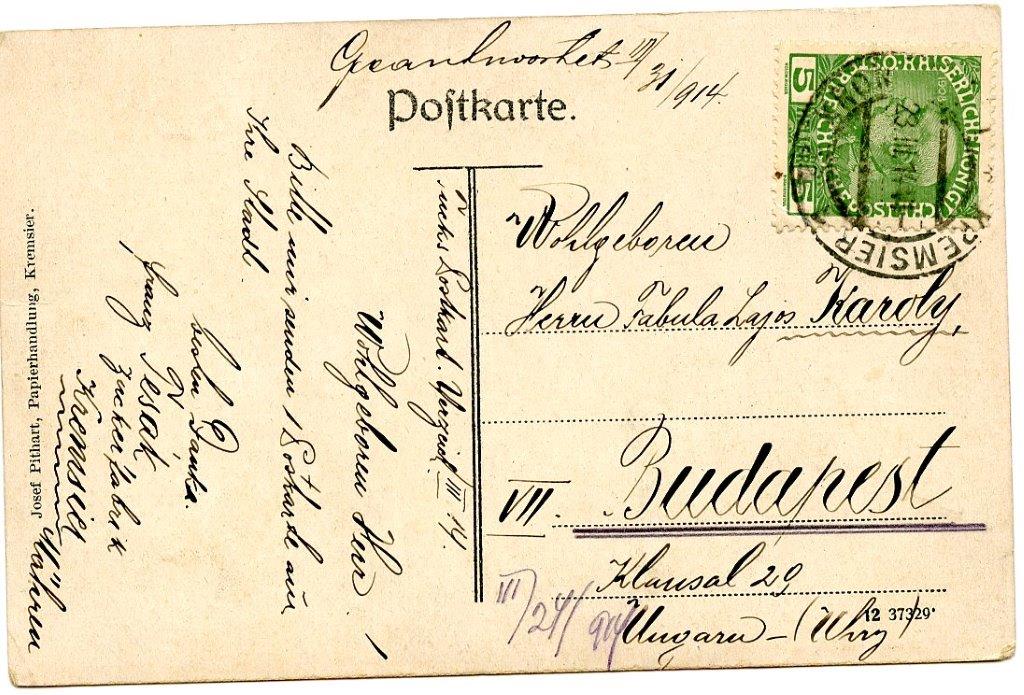 Geantwortet III/31/914.
Postkarte.
5 HELLER 5
KAISERLICHE KÖNIGLICHE ÖSTERREICHISCHE
KREMSIER
23 III 14
Wohlgeboren
Herrn Fabula Lajos Karoly,
VII. Budapest
Klausal 29
Ungarn - (Uhry)
III/24/914
12 37329
Postkart. Verzeich III 14.
Wohlgeboren Herr!
Bitte mir senden 1 Postkarte aus
Ihre Stadt.
besten Danke.
Franz Pesak
Zuckerfabrik
Kremsier
Mähren
Josef Pithart, Papierhandlung, Kremsier.